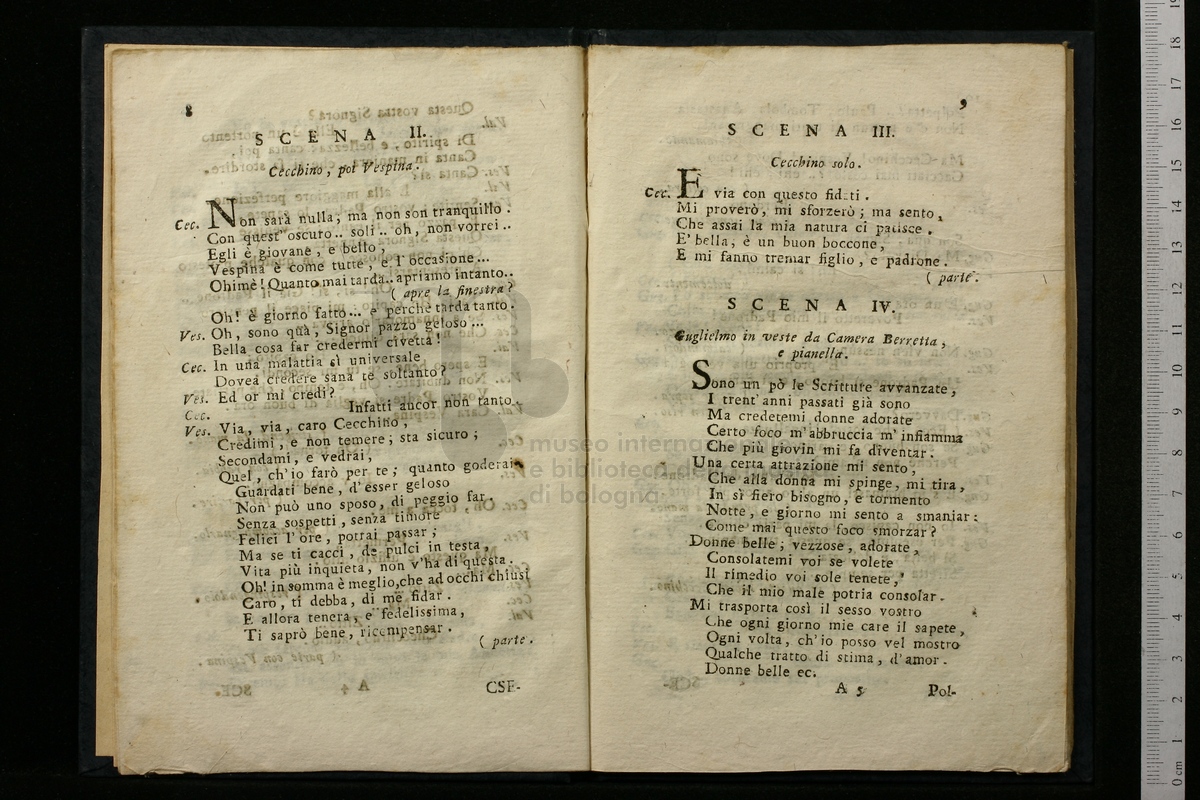 8
SCENA II.
Cecchino, poi Vespina.
Cec. Non sarà nulla; ma non son tranquillo.
Con quest' oscuro.. soli.. oh, non vorrei..
Egli è giovane, e bello,
Vespina è come tutte, e l'occasione...
Ohimè! Quanto mai tarda.. apriamo intanto..
( apre la finestra?
Oh! è giorno fatto... e perchè tarda tanto.
Ves. Oh, sono quà, Signor pazzo geloso...
Bella cosa far credermi civetta!
Cec. In una malattia sì universale
Dovea credere sana te soltanto?
Ves. Ed or mi credi?
Cec. Infatti ancor non tanto.
Ves. Via, via, caro Cecchino,
Credimi, e non temere; sta sicuro;
Secondami, e vedrai,
Quel, ch'io farò per te; quanto goderai
Guardati bene, d'esser geloso
Non può uno sposo, di peggio far.
Senza sospetti, senza timore
Felici l'ore, potrai passar;
Ma se ti cacci, de pulci in testa,
Vita più inquieta, non v'ha di questa.
Oh! in somma è meglio, che ad occhi chiusi
Caro, ti debba, di me fidar.
E allora tenera, e fedelissima,
Ti saprò bene, ricompensar.
( parte.
A 4
CSE-
9
SCENA III.
Cecchino solo.
Cec. E via con questo fidati.
Mi proverò, mi sforzerò; ma sento,
Che assai la mia natura ci patisce.
E' bella, è un buon boccone,
E mi fanno tremar figlio, e padrone.
( parte.
SCENA IV.
Guglielmo in veste da Camera Berretta,
e pianella.
Sono un pò le Scritture avvanzate,
I trent'anni passati già sono
Ma credetemi donne adorate
Certo foco m'abbruccia m'infiamma
Che più giovin mi fa diventar.
Una certa attrazione mi sento,
Che alla donna mi spinge, mi tira,
In sì fiero bisogno, e tormento
Notte, e giorno mi sento a smaniar:
Come mai questo foco smorzar?
Donne belle; vezzose, adorate,
Consolatemi voi se volete
Il rimedio voi sole tenete,
Che il mio male potria consolar.
Mi trasporta così il sesso vostro
Che ogni giorno mie care il sapete,
Ogni volta, ch'io posso vel mostro
Qualche tratto di stima, d'amor.
Donne belle ec.
A 5
Pol-
museo internazionale
e biblioteca della musica
di bologna